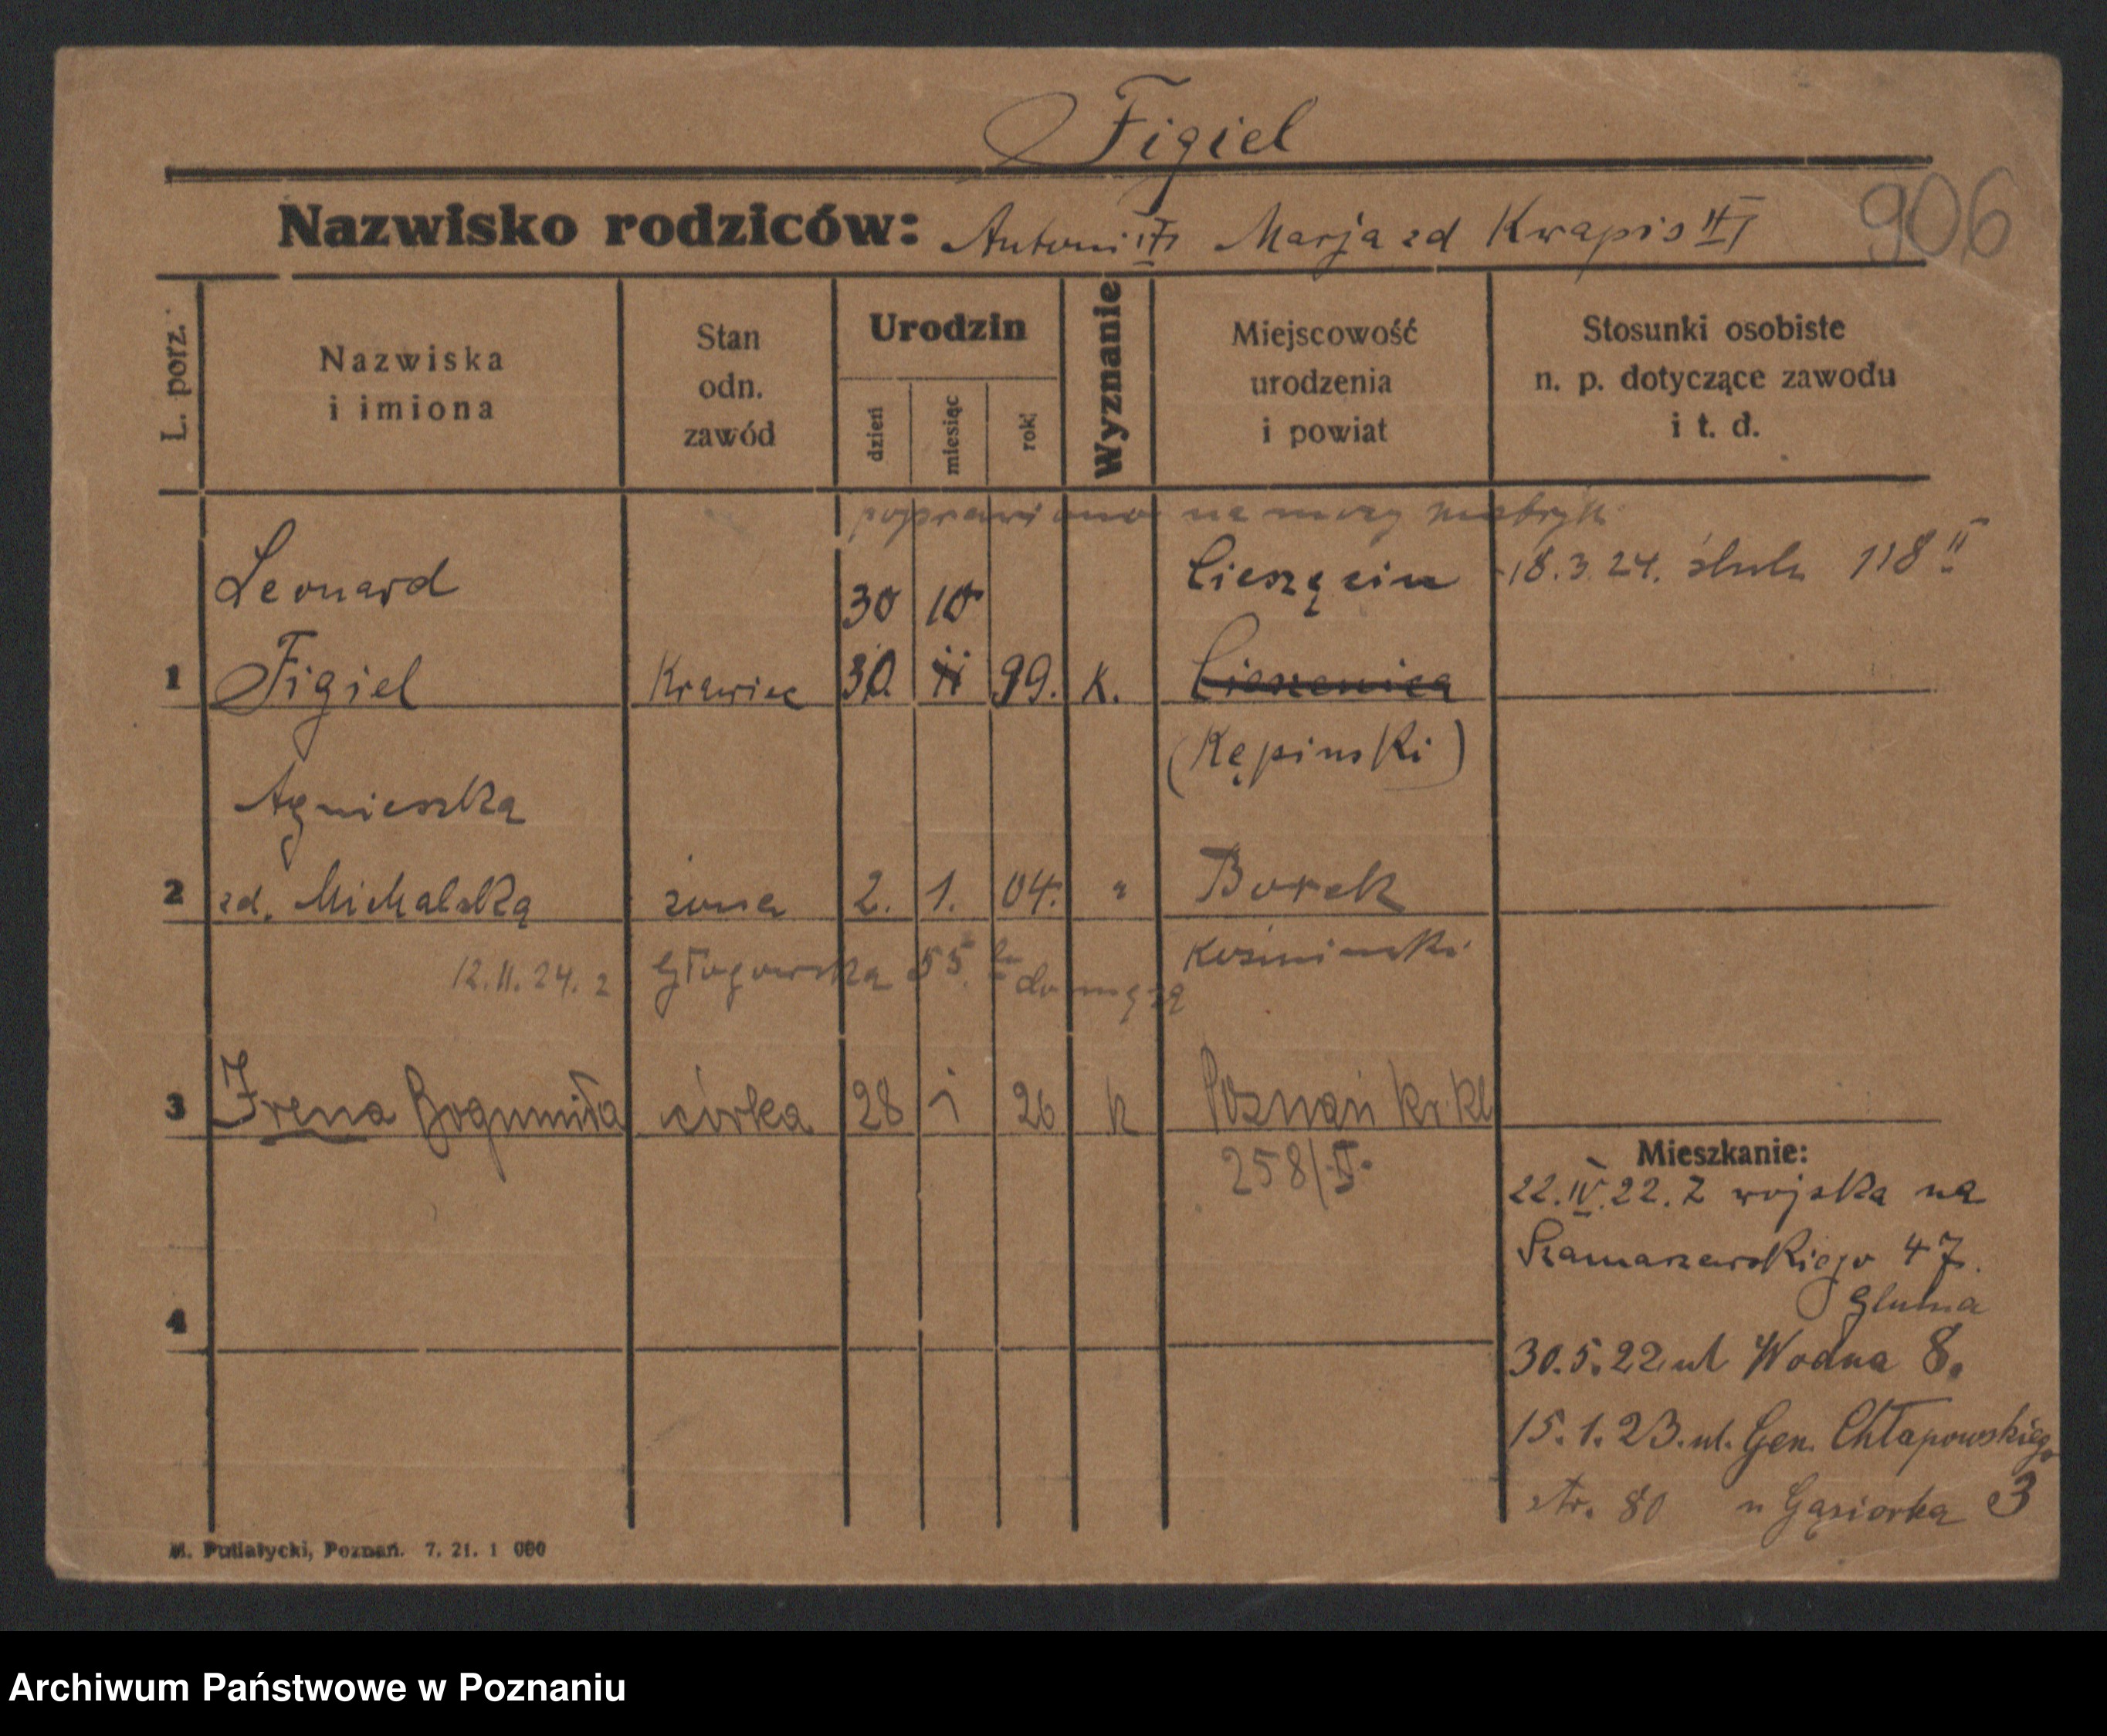 Figiel
Nazwisko rodziców: Antoni Marja zd Kwapis
906
L. porz.
Nazwiska i imiona
Stan odn. zawód
Urodzin
dzień
miesiąc
rok
Wyznanie
Miejscowość urodzenia i powiat
Stosunki osobiste n. p. dotyczące zawodu i t. d.
poprawiono na mocy metryk
Leonard 30 10 Cieszęcin 18.3.24. 118 II
1 Figiel Krawiec 30. 11 99. K. Cieszenica
(Kępinski)
Agnieszka
2 zd. Michalska żona 2. 1. 04. " Borek
Koźminski
12.11.24. z Głogowska 55. do męża
3 Irena Bogumiła córka 28 1 26 k Poznań kr. kl
258/II.
Mieszkanie:
22.IV.22. Z wojska na
Szamarzewskiego 47.
Gluma
4
30.5.22 ul Wodna 8.
15.1.23. ul. Gen. Chłapowskiego
str. 80 u Gąsiorka 3
M. Putiatycki, Poznań. 7. 21. 1 000
Archiwum Państwowe w Poznaniu